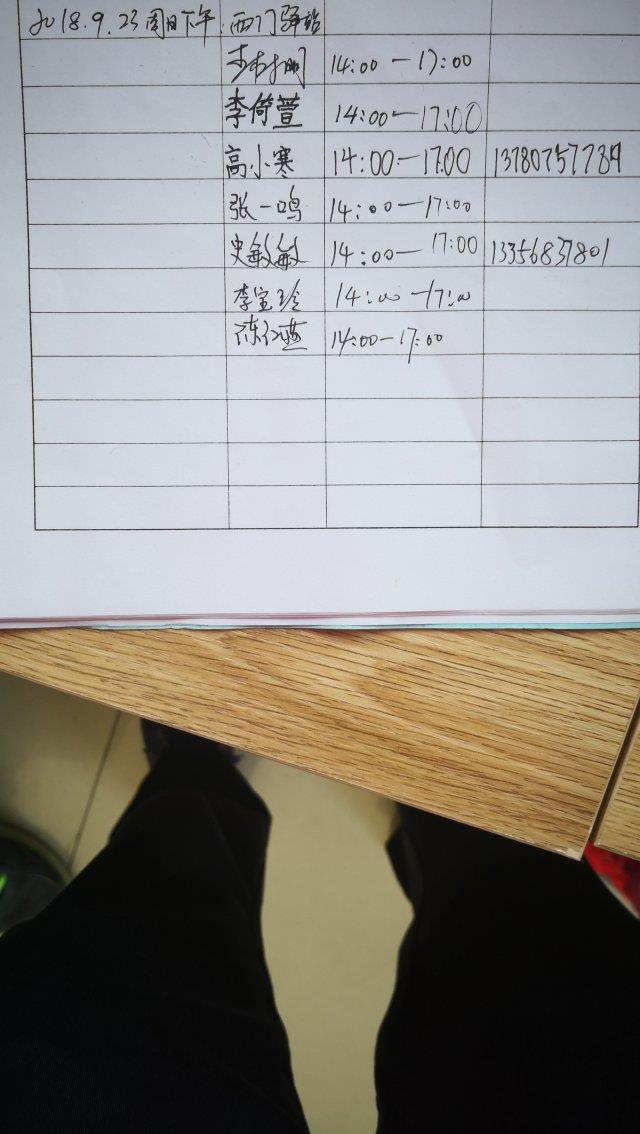 2018.9.23周日下午 西门驿站
14:00—17:00
李倚萱 14:00—17:00
高小寒 14:00—17:00 13780757789
张一鸣 14:00—17:00
史敏敏 14:00—17:00 13356837801
李宝玲 14:00—17:00
14:00—17:00